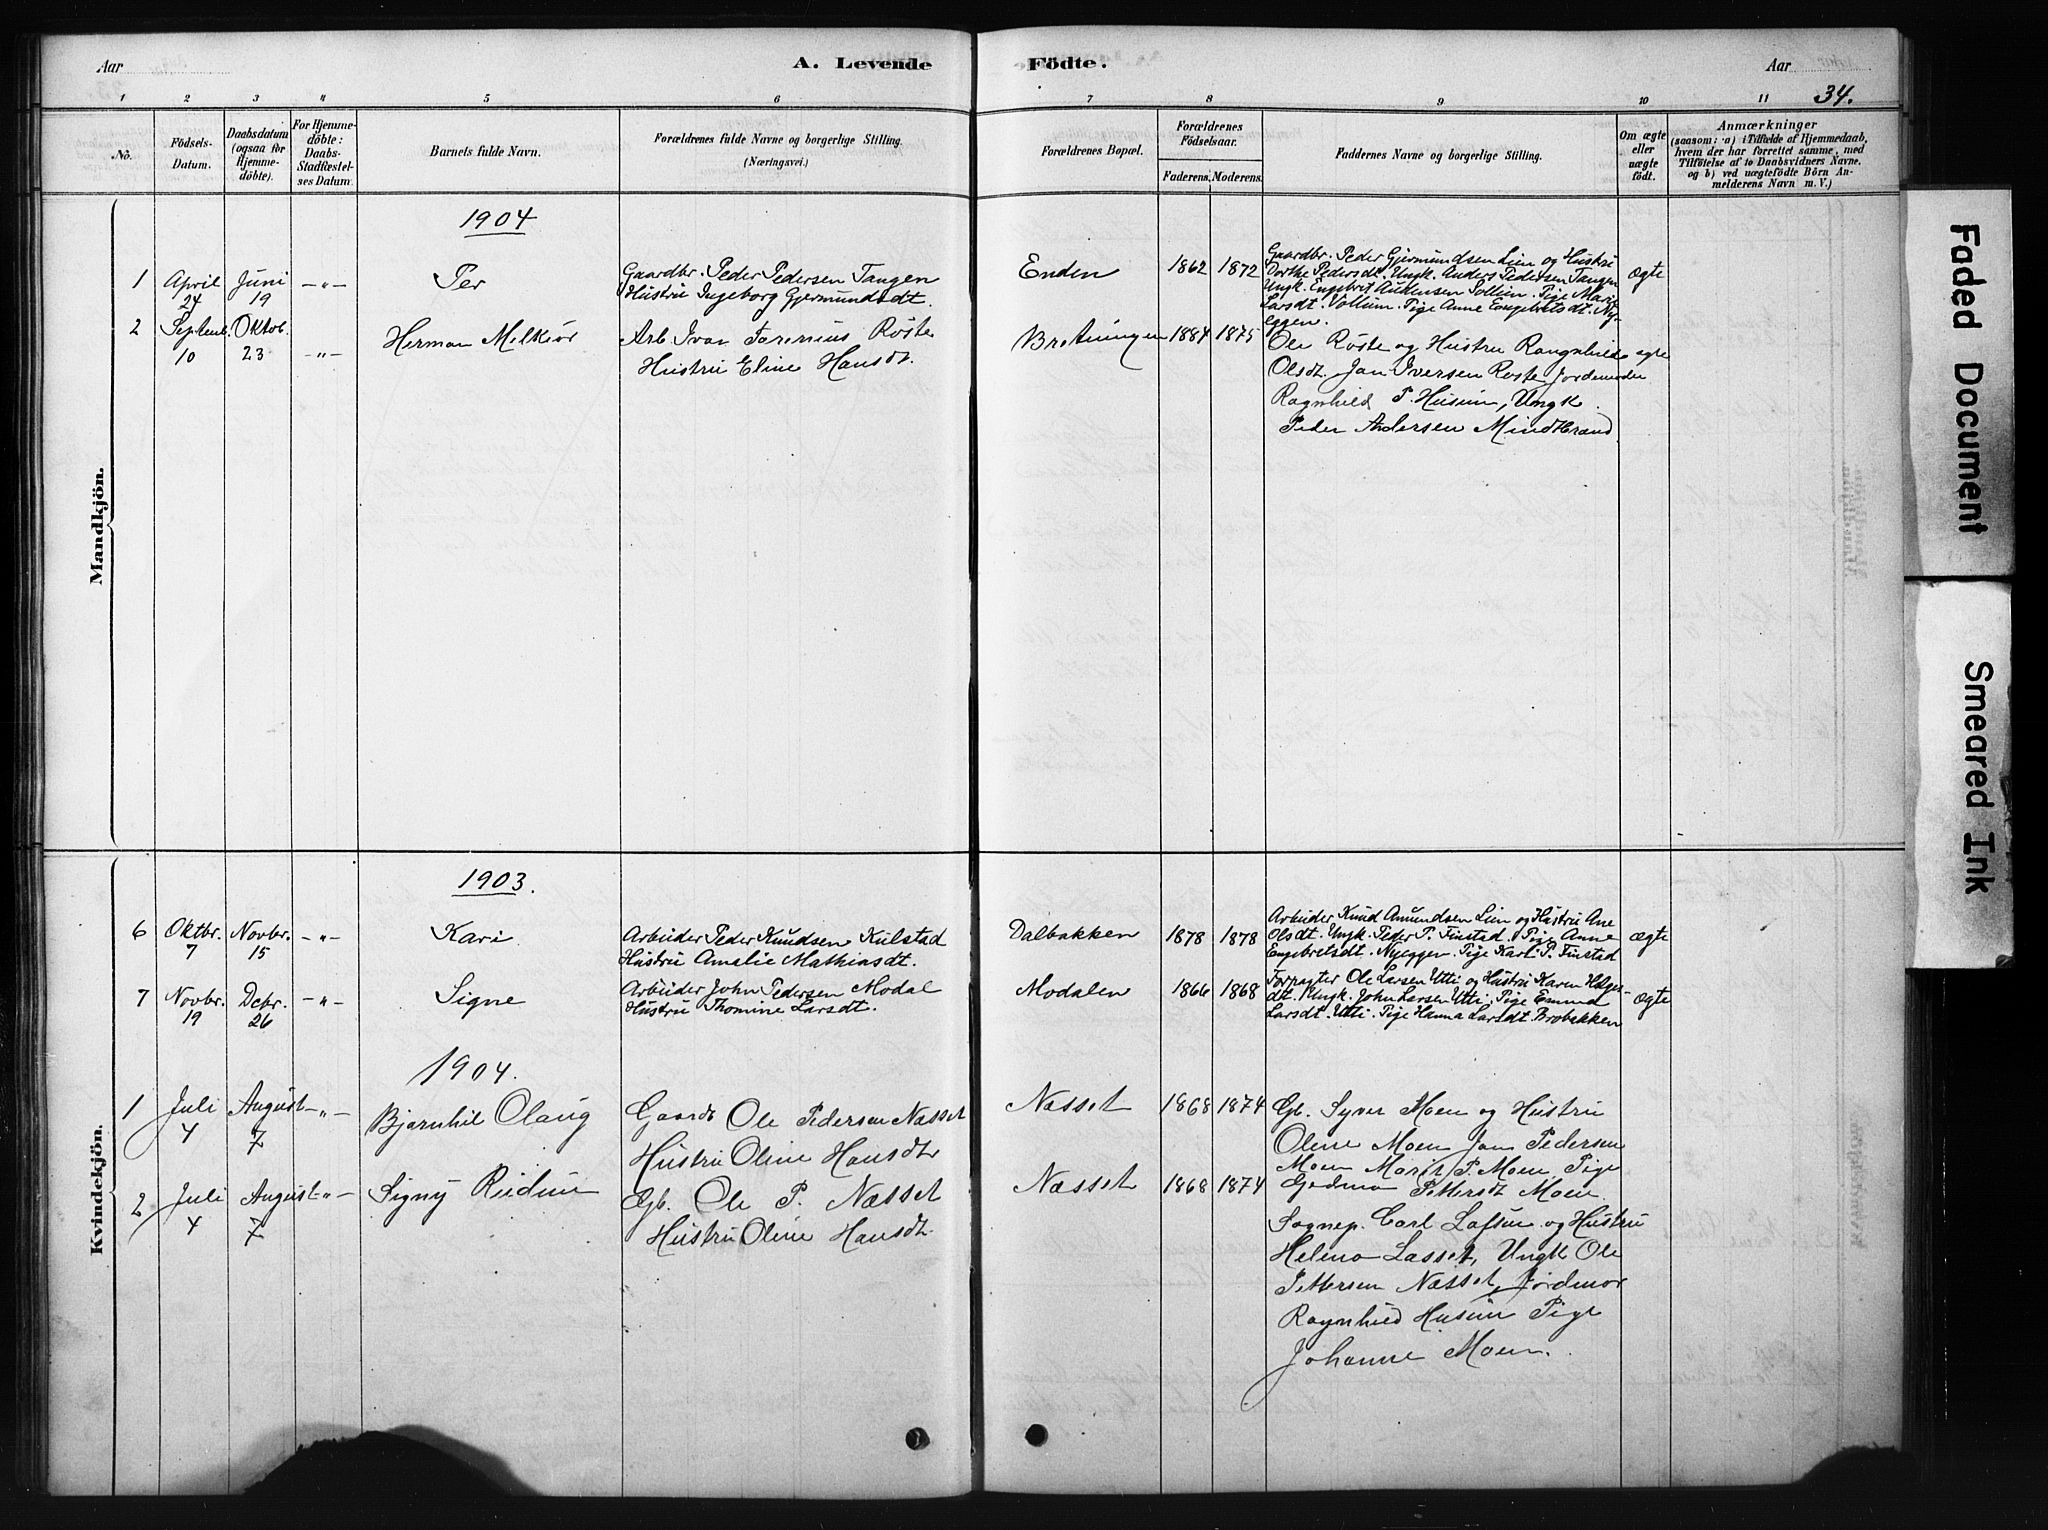 Aar
A. Levende
Födte.
Aar
34.
1 2 3 4 5 6 7 8 9 10 11
No.
Födsels-
Datum.
Daabsdatum
(ogsaa for
Hjemme-
döbte).
For Hjemme-
döbte:
Daabs-
Stadfæstel-
ses Datum.
Barnets fulde Navn.
Forældrenes fulde Navne og borgerlige Stilling.
(Næringsvei.)
Forældrenes Bopæl.
Forældrenes
Födselsaar.
Faderens. Moderens.
Faddernes Navne og borgerlige Stilling.
Om ægte
eller
uægte
födt.
Anmærkninger
(saasom: a) i Tilfælde af Hjemmedaab,
hvem der har forrettet samme, med
Tilföielse af to Daabsvidners Navne.
og b) ved uægtefödte Börn An-
melderens Navn m. V.)
Mandkjön.
1904
1
April
24
Juni
19
-"-
Per
Gaardbr. Peder Pedersen Tangen
Hustru Ingeborg Gjermundsdt.
Enden
1862
1872
Gaardbr. Peder Gjermundsen Lien og Hustru
Dorthe Pedersdt. Ungk. Anders Pedersen Tangen
Ungk. Engebret Audensen Sollien. Pige Marit
Larsdt. Vollum. Pige Anne Engebretsdt. Ny-
eggen.
ægte
2
Septemb.
10
Oktob.
23
-"-
Herman Melkior
Arb Ivar Röste
Hustru Eline Hansdt.
Bretningen
1884
1875
Ole Röste og Hustru Rangnhild
Olsdt. Jan Iversen Röste Jordemoder
Ragnhild P. Husum, Ungk.
Peder Andersen Mindtbrand
egte
Kvindekjön.
1903.
6
Oktbr.
7
Novbr.
15
-"-
Kari
Arbeider Peder Knudsen Kulstad
Hustru Amalie Mathiasdt.
Dalbakken
1878
1878
Arbeider Knud Amundsen Lien og Hustru Ane
Olsdt. Ungk. Peder P. Finstad. Pige Anne
Engebretsdt. Nyeggen. Pige Kari P. Finstad
ægte
7
Novbr.
19
Decbr.
26
-"-
Signe
Arbeider John Pedersen Modal
Hustru Thomine Larsdt.
Modalen
1866
1868
Forpagter Ole Larsen Utti og Hustru Karen Helges-
dt. Ungk. John Larsen Utti. Pige Emma
Larsdt. Utti. Pige Hanna Larsdt. Brobakken
ægte
1904.
1
Juli
4
August
7
-"-
Bjarnhil Olaug
Gaardb Ole Pedersen Næsset
Hustru Oline Hansdt.
Næsset
1868
1874
Gb. Syver Moen og Hustru
Oline Moen Jan Pedersen
Moen Marit P. Moen Pige
Pettersdt Moen.
2
Juli
4
August
7
-"-
Signy Ruduu
Gb. Ole P. Næsset
Hustru Oline Hansdt.
Næsset
1868
1874
Sognep. Carl Lassen og Hustru
Helena Lassen, Ungk Ole
Pettersen Næsset, Jordmor
Ragnhild Husum Pige
Johanne Moen.
Faded Document
Smeared Ink